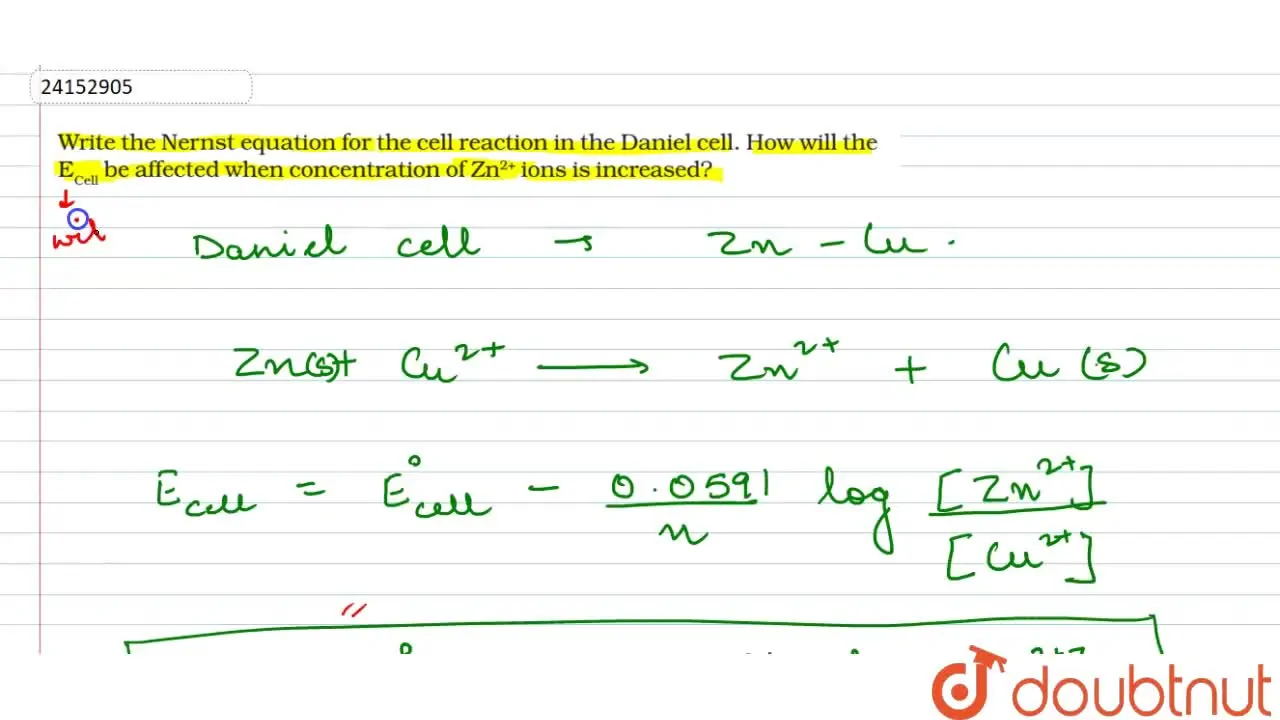 24152905
Write the Nernst equation for the cell reaction in the Daniel cell. How will the
E_Cell be affected when concentration of Zn²⁺ ions is increased?
Daniel cell → Zn - Cu.
Zn(s) + Cu²⁺ ⟶ Zn²⁺ + Cu(s)
E_cell = E°_cell - 0.0591/n log [Zn²⁺]/[Cu²⁺]
doubtnut